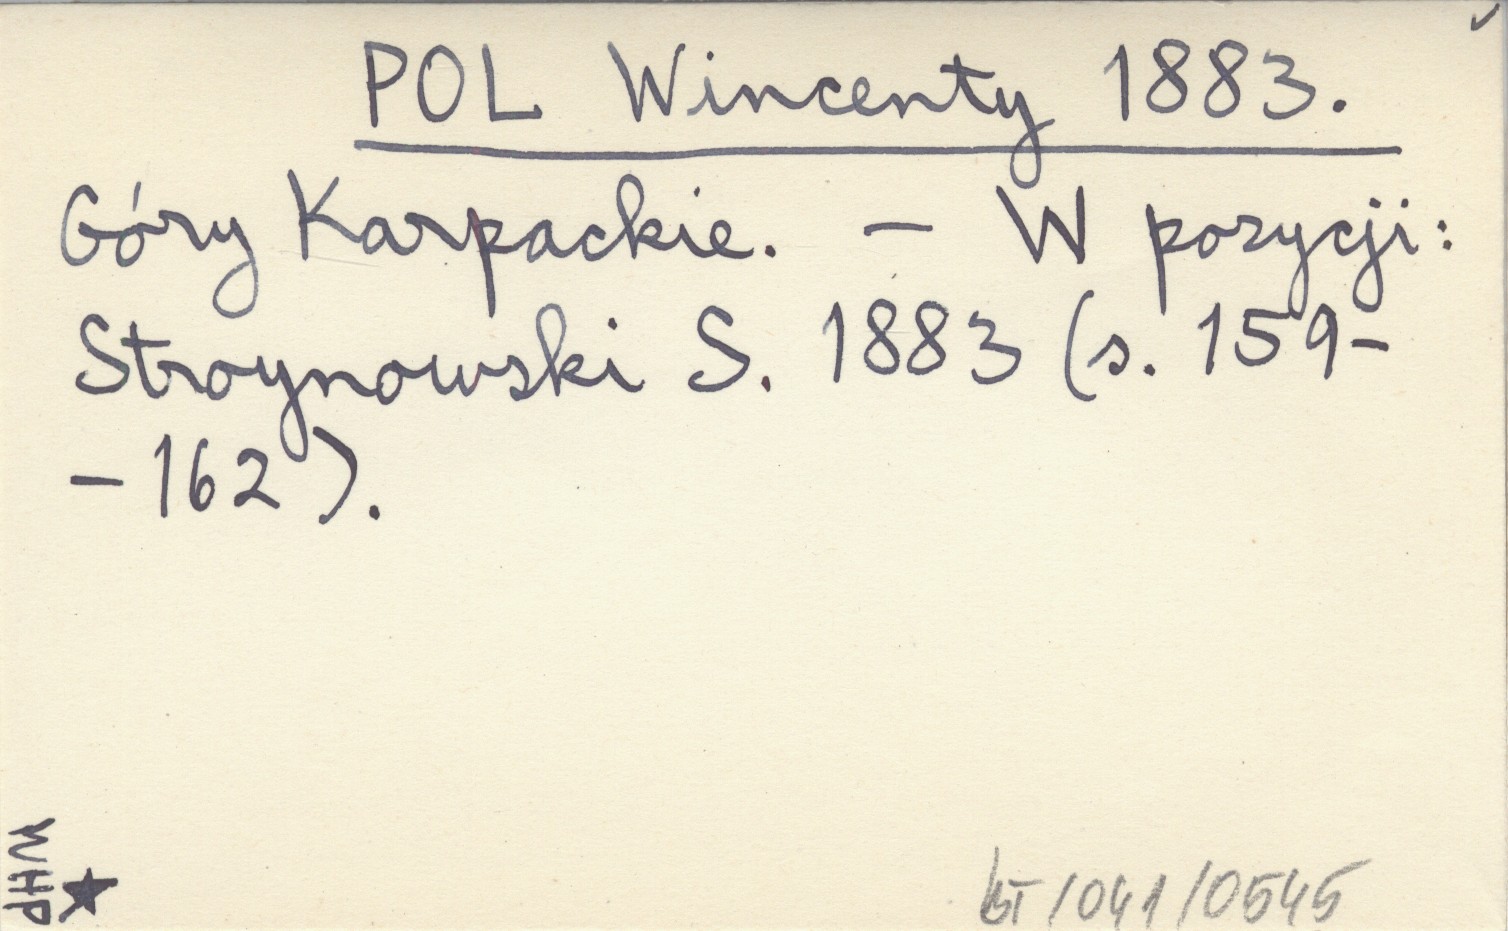 POL Wincenty 1883.
Góry Karpackie. – W pozycji:
Stroynowski S. 1883 (s. 159–
– 162).
WHP
/041/0545